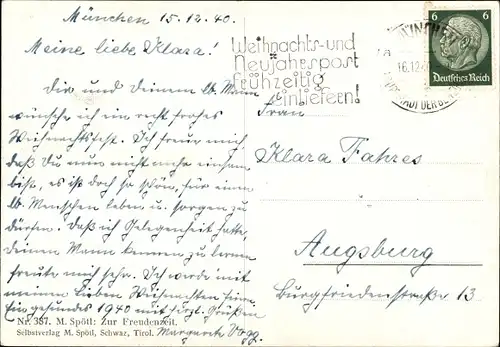 München 15.12.40.
Meine liebe Klara!
Dir und Deinem lb. Mann
wünsche ich ein recht frohes
Weihnachtsfest. Ich freue mich
daß Du nun nicht mehr einsam
bist, es ist doch so schön, für einen
lb. Menschen leben u. sorgen zu
dürfen. Daß ich Gelegenheit hatte,
deinen Mann kennen zu lernen
freute mich sehr. Ich werde mit
meinen Lieben Weihnachten feiern.
Ein gesundes 1940 mit herzl. Grüßen
Margarete Vogg.
Nr. 387. M. Spötl: Zur Freudenzeit.
Selbstverlag M. Spötl, Schwaz, Tirol.
Weihnachts- und
Neujahrspost
frühzeitig
einliefern!
MÜNCHEN
16.12.40
6 6
Deutsches Reich
Frau
Klara Fahres
Augsburg
Burgfriedenstraße 13.